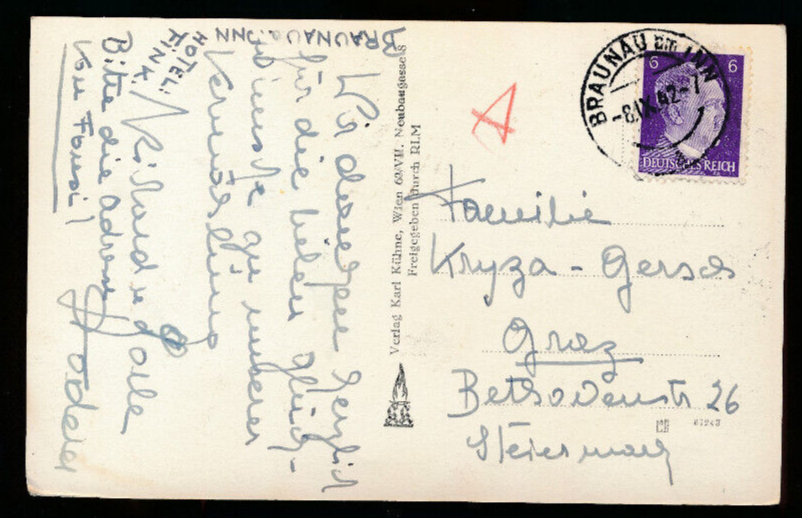 HOTEL:
FINK
BRAUNAU a. JNN
Wir danken herzlich
für die lieben Glück-
wünsche zu unserer
Vermählung
Richard u.
Bitte die Adresse
von Fausi!
Verlag Karl Kühne, Wien 62/VII. Neubaugasse 8
Freigegeben durch RLM
BRAUNAU am INN
-8.IX.42-7
6 6
DEUTSCHES REICH
Familie
Kryza - Gersch
Graz
Bethovenstr 26
Steiermark